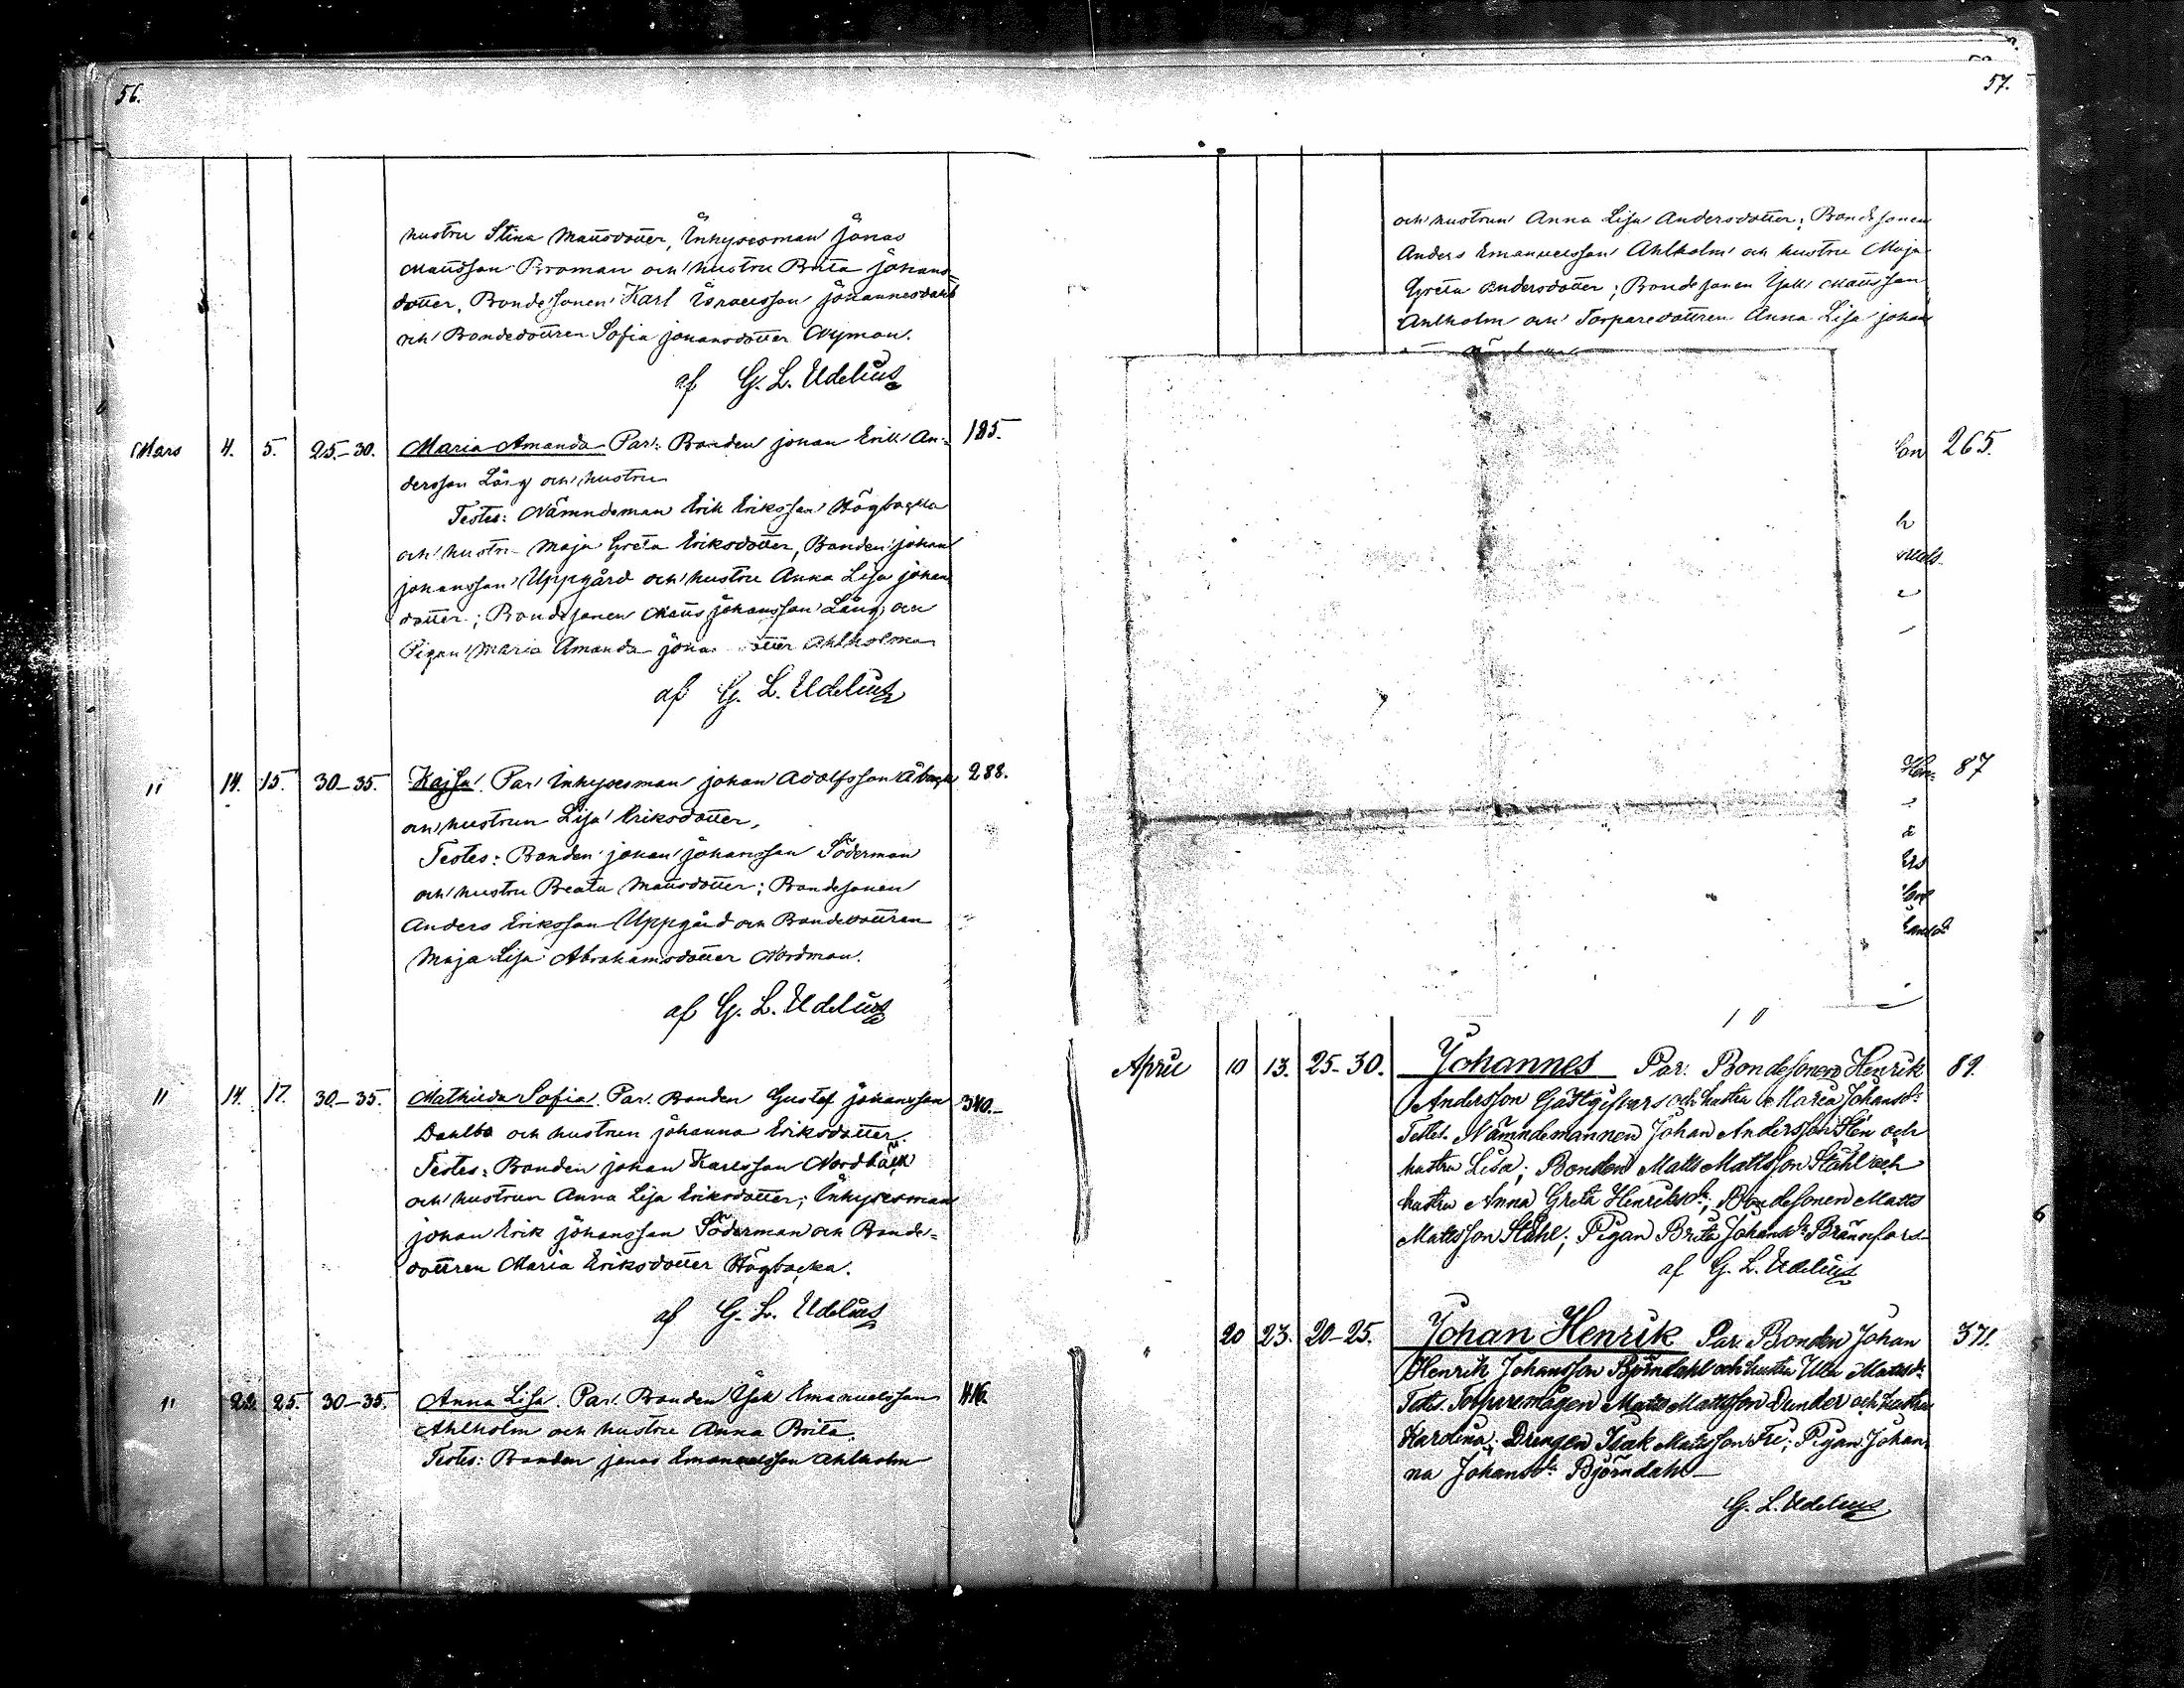 56.
hustru Stina Mattsdotter, Inhysesman Jonas
Mattsson Broman och hustru Brita Johans-
dotter, Bondesonen Karl Israelsson Johannesdahl
och Bondedottren Sofia Johansdotter Nyman.
af G. L. Udelius
Mars 4. 5. 25-30. Maria Amanda Par: Bonden Johan Erik An- 185.
dersson Lång och hustru
Testes: Nämndeman Erik Eriksson Högbacka
och hustru Maja Greta Eriksdotter, Bonden Johan
Johansson Uppgård och hustru Anna Lisa Johans
dotter; Bondesonen Matts Johansson Lång och
Pigan Maria Amanda Johansdotter Ahlholm
af G. L. Udelius
" 14. 15. 30-35. Kajsa. Par: Inhysesman Johan Adolfsson Åback 288.
och hustrun Lisa Eriksdotter,
Testes: Bonden Johan Johansson Söderman
och hustru Beata Mattsdotter; Bondesonen
Anders Eriksson Uppgård och Bondedottren
Maja Lisa Abrahamsdotter Nordman.
af G. L. Udelius
" 14. 17. 30-35. Mathilda Sofia. Par. Bonden Gustaf Johansson 340.
Dahlbo och hustrun Johanna Eriksdotter.
Testes: Bonden Johan Karlsson Nordbäck
och hustrun Anna Lisa Eriksdotter; Inhysesman
Johan Erik Johansson Söderman och Bonde-
dottren Maria Eriksdotter Högbacka.
af G. L. Udelius
" 22. 25. 30-35. Anna Lisa. Par. Bonden Isak Emanuelsson 416.
Ahlholm och hustru Anna Brita.
Testes: Bonden Jonas Emanuelsson Ahlholm
57.
och hustrun Anna Lisa Andersdotter; Bondesonen
Anders Emanuelsson Ahlholm och hustru Maja
Greta Andersdotter; Bondesonen Isak Mattsson
Ahlholm och Torparedottren Anna Lisa Johans
265.
87
April 10 13. 25-30. Johannes Par: Bondesonen Henrik 89.
Andersson Gästgifvars och hustru Maria Johansdr
Testes. Nämndemannen Johan Andersson Sten och
hustru Lisa; Bonden Matts Mattsson Ståhl och
hustru Anna Greta Henriksdr; Bondesonen Matts
Mattsson Ståhl; Pigan Brita Johansdr Brännfors
af G. L. Udelius
" 20 23. 20-25. Johan Henrik Par. Bonden Johan 371.
Henrik Johansson Björndahl och hustru Ulla Mattsdr
Testes. Torparemågen Matts Mattsson Dunder och hustru
Karolina; Drengen Isak Mattsson Fri; Pigan Johan
na Johansdr Björndahl
G. L. Udelius